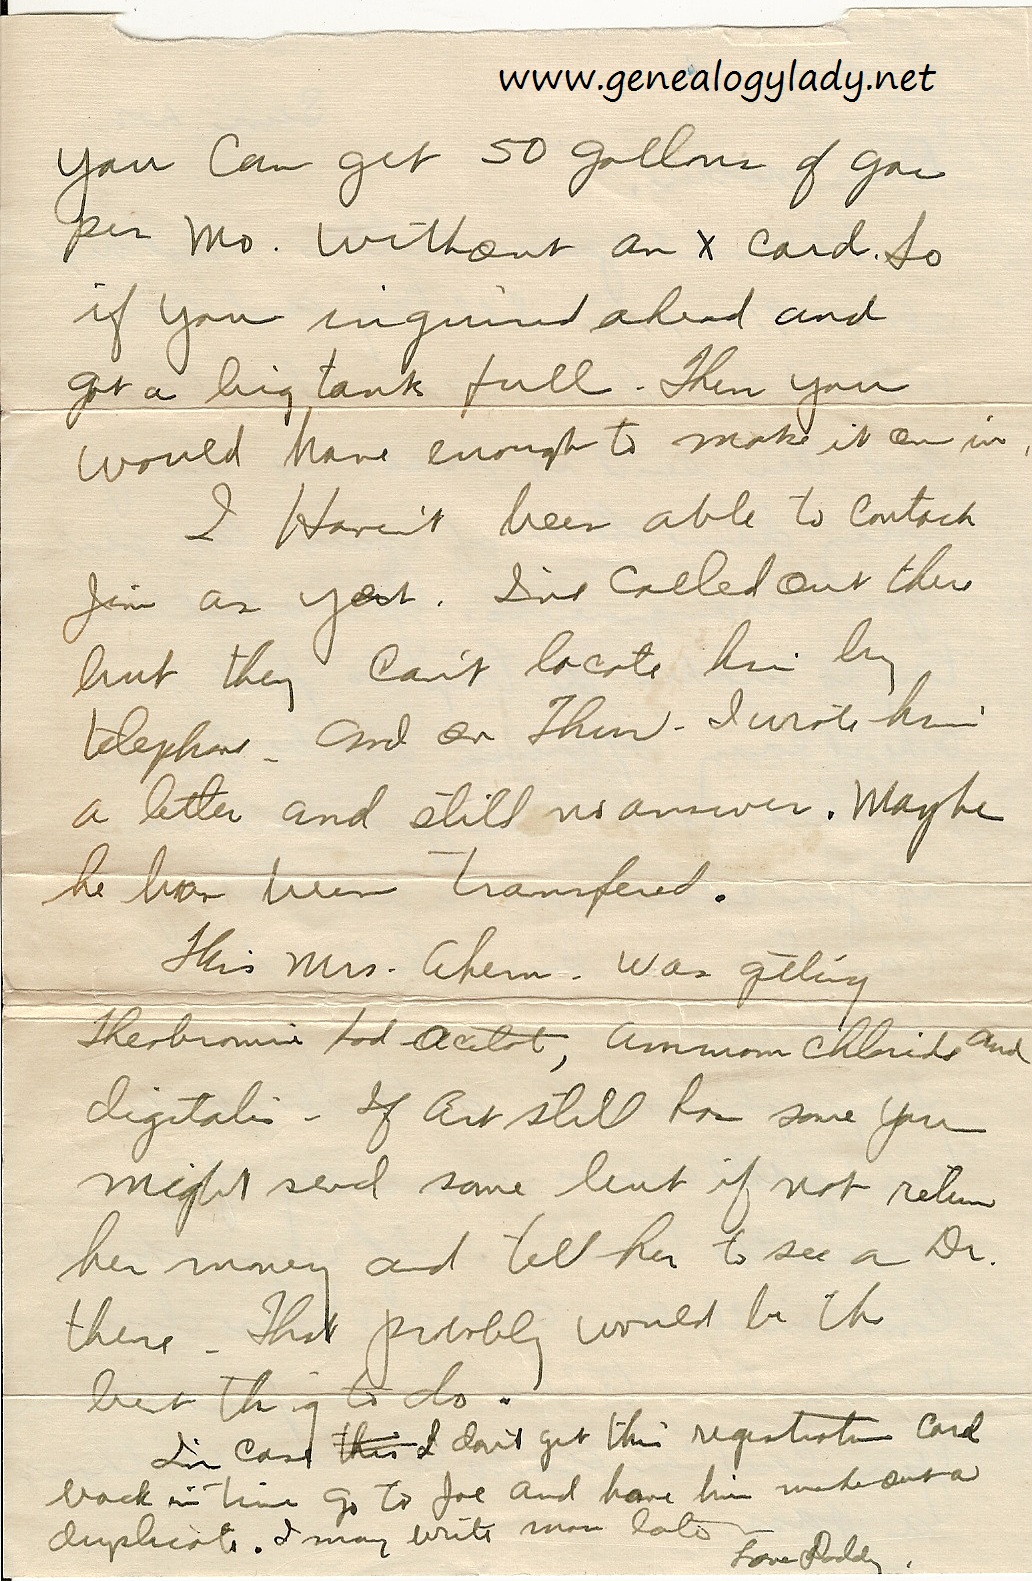 www.genealogylady.net
you can get 50 gallons of gas
per Mo. without an X card. So
if you inquired ahead and
got a big tank full - Then you
would have enough to make it on in.
I Haven't been able to contact
Jim as yet. I've called out there
but they can't locate him by
telephone - and on Thur - I wrote him
a letter and still no answer. Maybe
he has been transfered.
This Mrs. Ahern - was getting
Theobromine Sod acetat, ammom chloride and
digitalis - If Art still has some you
might send some but if not return
her money and tell her to see a Dr.
there - That probably would be the
best thing to do.
In case this I don't get this registration card
back in time go to Joe and have him make out a
duplicate. I may write more later
Love Daddy.